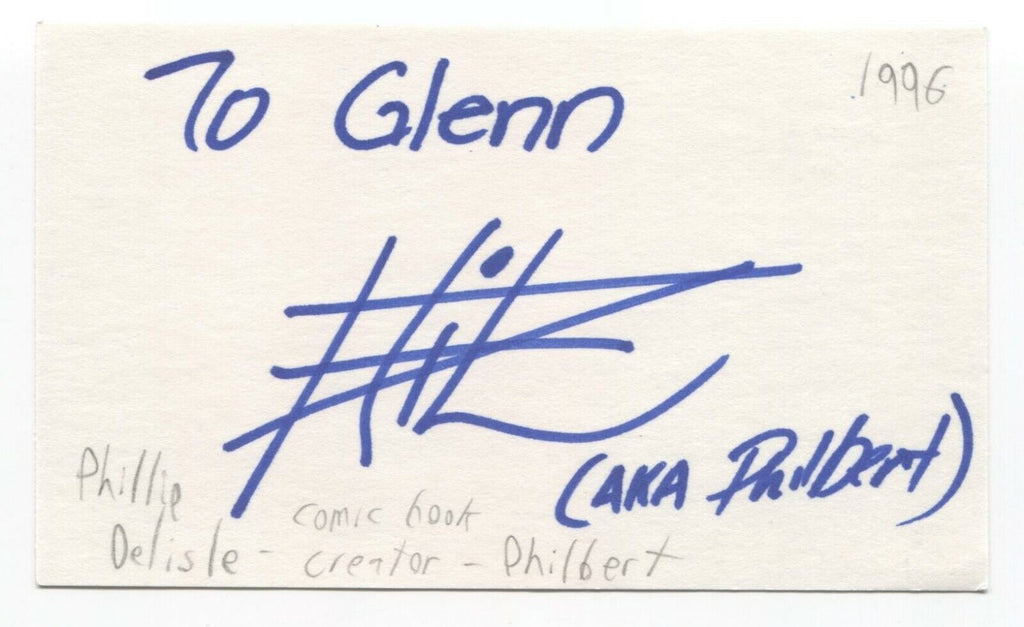 To Glenn
1996
Phil
(AKA Philbert)
Phillip
Delisle - comic book
creator - Philbert